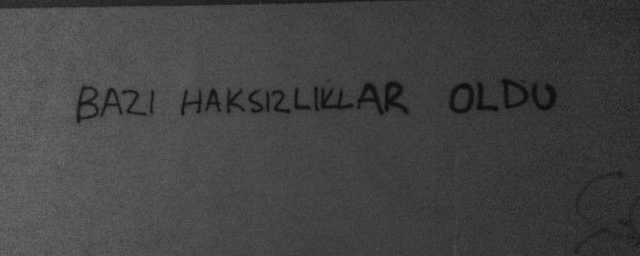 BAZI HAKSIZLIKLAR OLDU